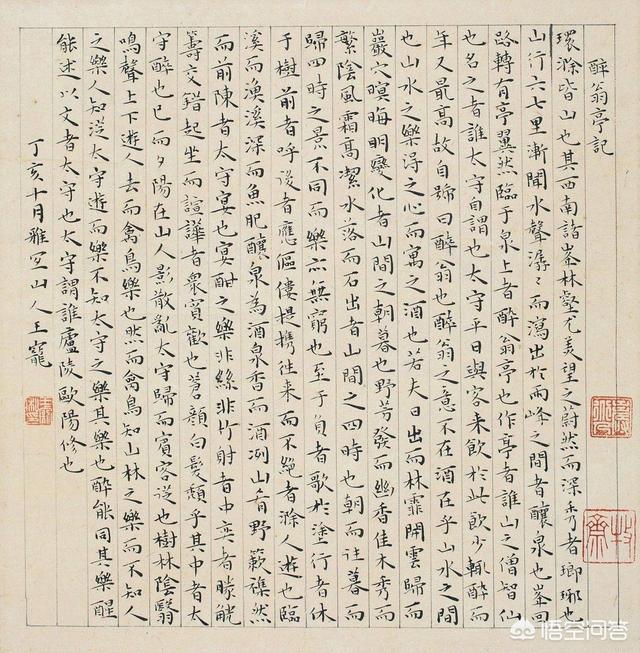 醉翁亭記
環滁皆山也其西南諸峯林壑尤美望之蔚然而深秀者瑯琊也
山行六七里漸聞水聲潺潺而瀉出於兩峰之間者釀泉也峯回
路轉有亭翼然臨于泉上者醉翁亭也作亭者誰山之僧智仙
也名之者誰太守自謂也太守平日與客来飲於此飲少輒醉而
年又最高故自號曰醉翁也醉翁之意不在酒在乎山水之間
也山水之樂得之心而寓之酒也若夫日出而林霏開雲歸而
巖穴暝晦明變化者山間之朝暮也野芳發而幽香佳木秀而
繁陰風霜高潔水落而石出者山間之四時也朝而往暮而
歸四時之景不同而樂亦無窮也至于負者歌於塗行者休
于樹前者呼後者應傴僂提携往来而不絕者滁人遊也臨
溪而漁溪深而魚肥釀泉為酒泉香而酒冽山肴野蔌襍然
而前陳者太守宴也宴酣之樂非絲非竹射者中奕者勝觥
籌交錯起坐而諠譁者衆賓歡也蒼顏白髮頹乎其中者太
守醉也已而夕陽在山人影散亂太守歸而賓客從也樹林陰翳
鳴聲上下遊人去而禽鳥樂也然而禽鳥知山林之樂而不知人
之樂人知從太守遊而樂不知太守之樂其樂也醉能同其樂醒
能述以文者太守也太守謂誰廬陵歐陽修也
丁亥十月雅宜山人王寵
悟空问答